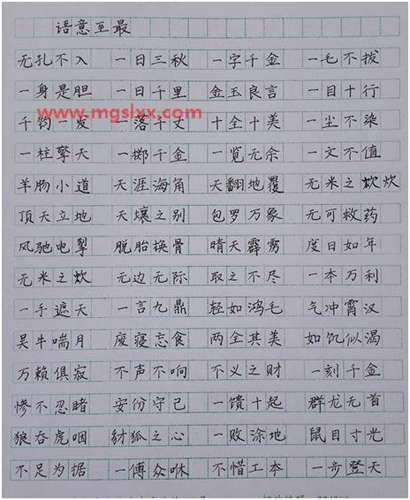 语意互最
无孔不入 一日三秋 一字千金 一毛不拔
一身是胆 一日千里 金玉良言 一目十行
www.mgslxx.com
千钧一发 一落千丈 十全十美 一尘不染
一柱擎天 一掷千金 一览无余 一文不值
羊肠小道 天涯海角 天翻地覆 无米之炊炊
顶天立地 天壤之别 包罗万象 无可救药
风驰电掣 脱胎换骨 晴天霹雳 度日如年
无米之炊 无边无际 取之不尽 一本万利
一手遮天 一言九鼎 轻如鸿毛 气冲霄汉
吴牛喘月 废寝忘食 两全其美 如饥似渴
万籁俱寂 不声不响 不义之财 一刻千金
惨不忍睹 安份守己 一馈十起 群龙无首
狼吞虎咽 豺狐之心 一败涂地 鼠目寸光
不足为据 一傅众咻 不惜工本 一步登天